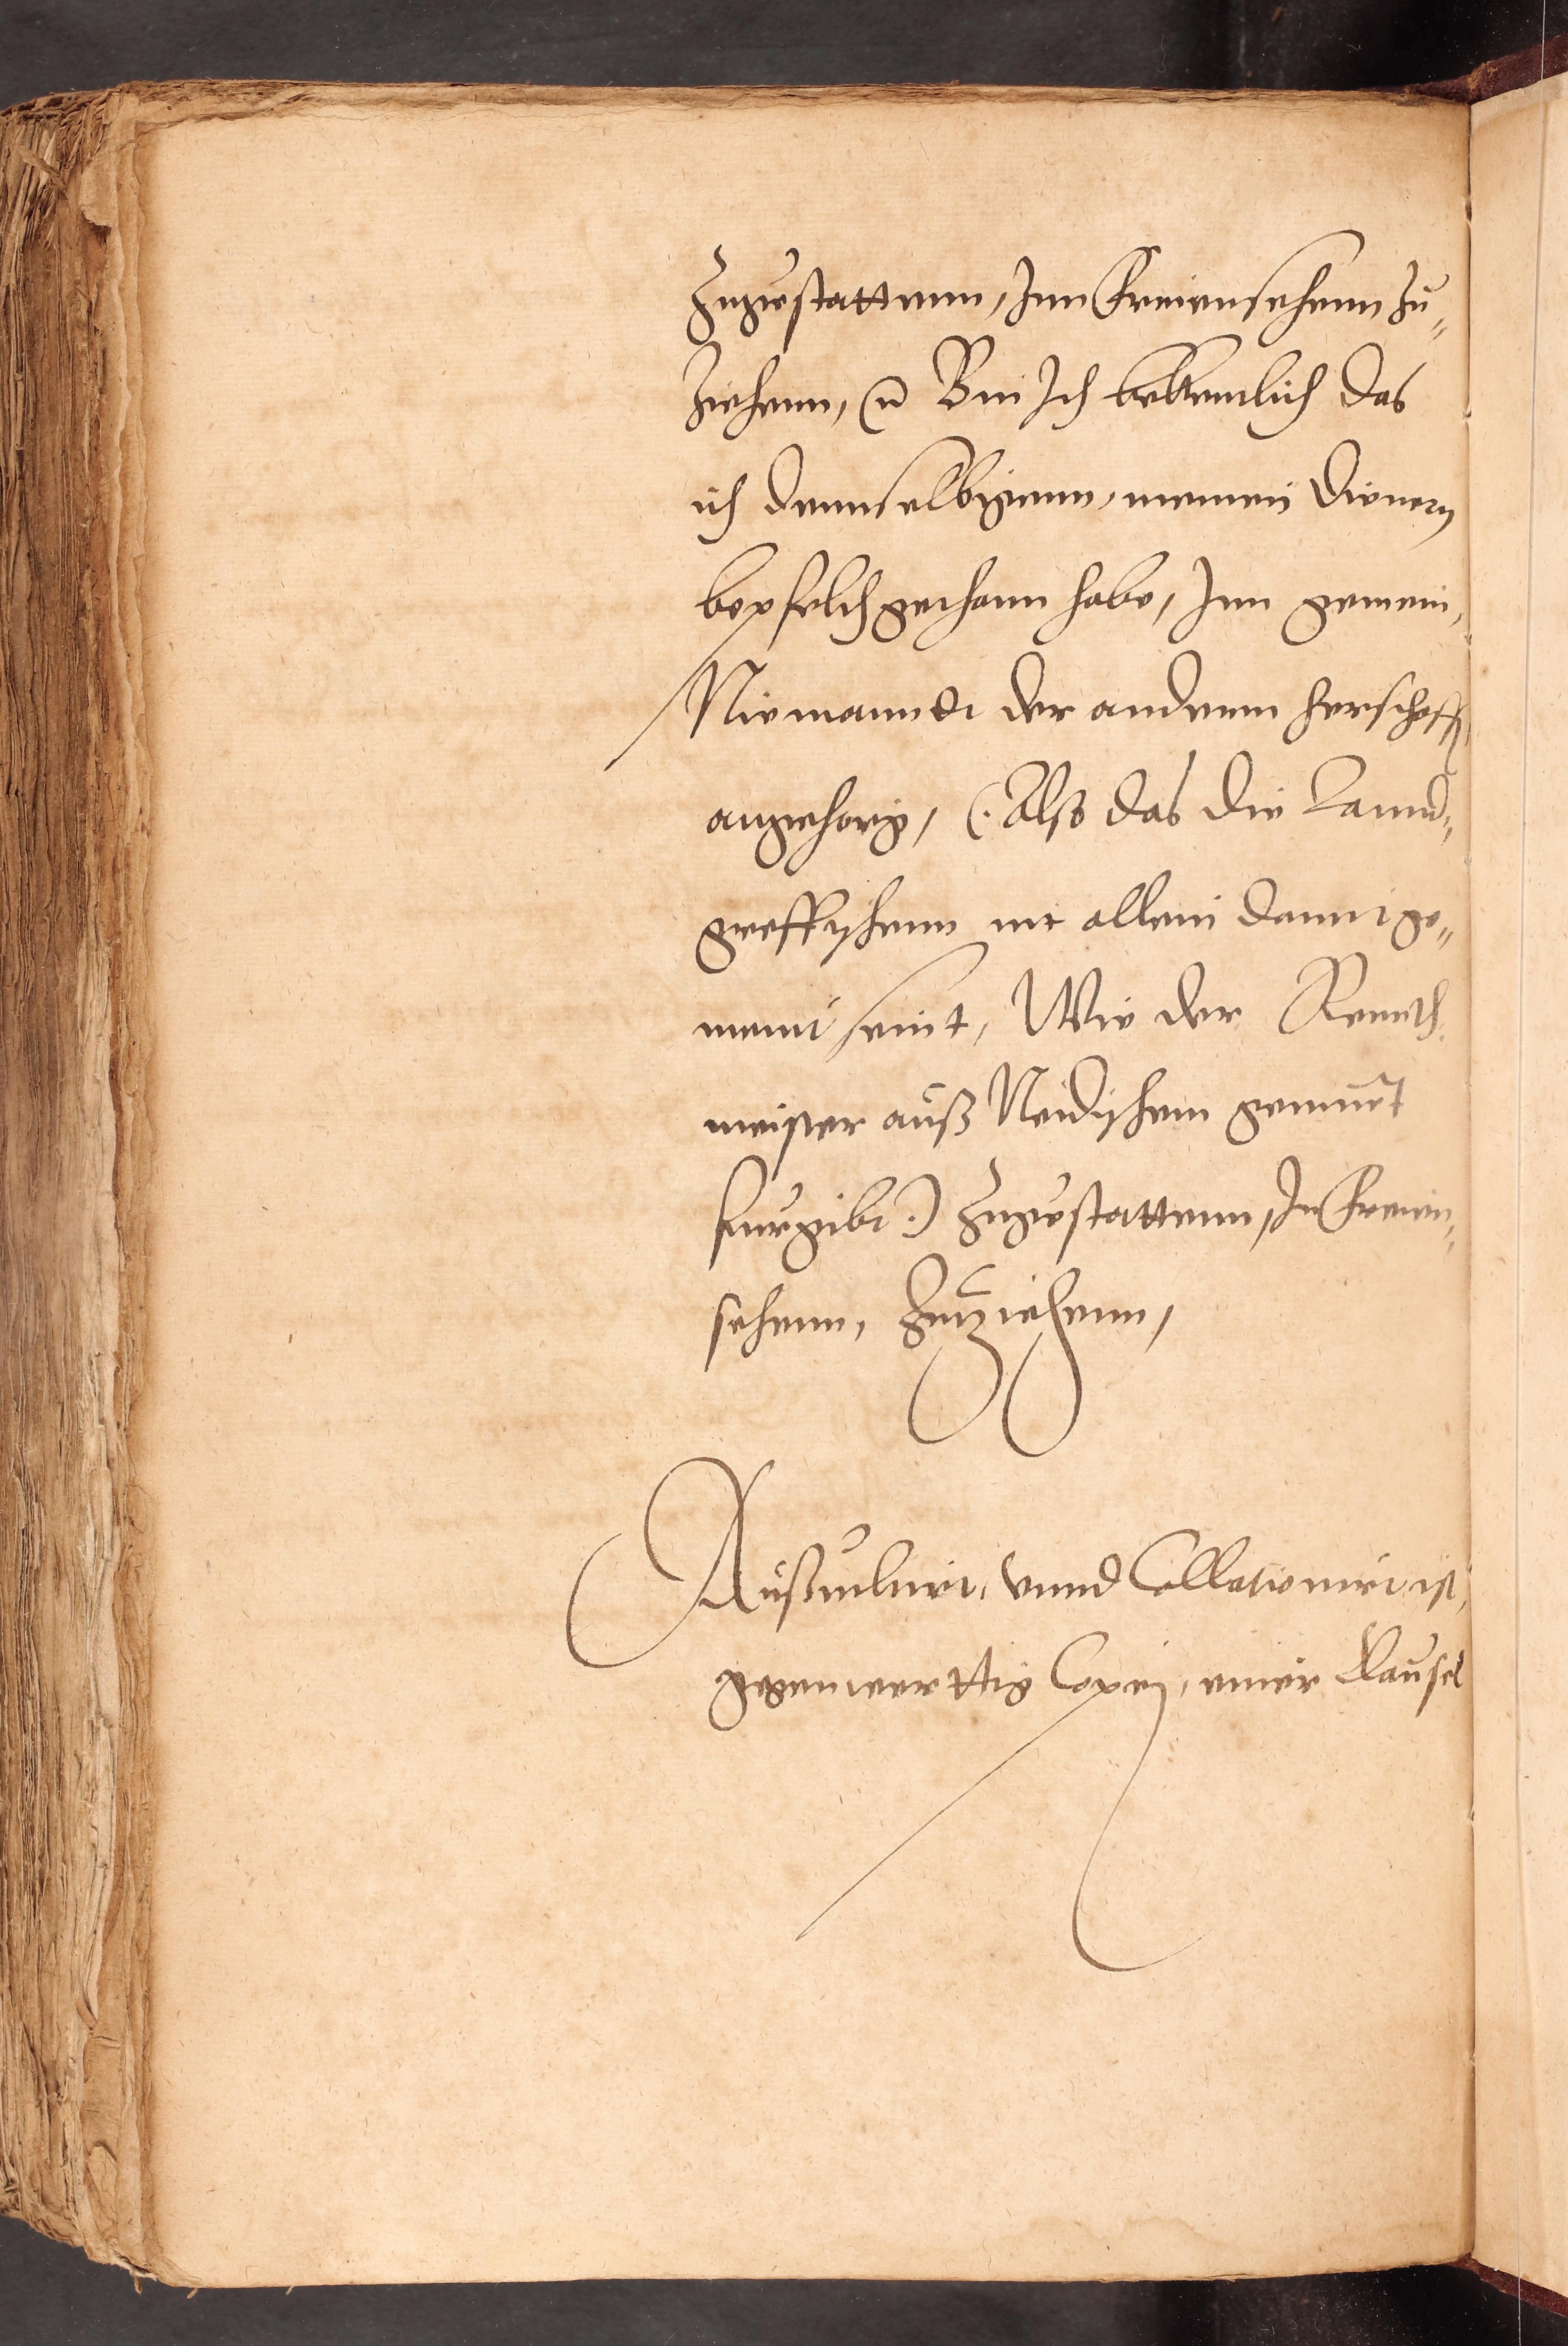 Zugestattenn, Inn Freiensehenn zu„
ziehenn, (n Bin Ich bekentlich das
ich dennselbigenn, meinen Dienern
bepfelch gethann habe, Inn gemein,
Niemanndt der anderen herschafft
angehorig, (: Alß das die Lannd„
greffischenn nit allein damit ge„
meint seint, Wie der Renth
meister auß Neidischem gemuet
furgibt :) Zugestattenn, In Freien„
sehenn, Zuziehenn,
Außculirt, vnnd Collationirt ist,
gegenwerttig Copej, einer Clausel